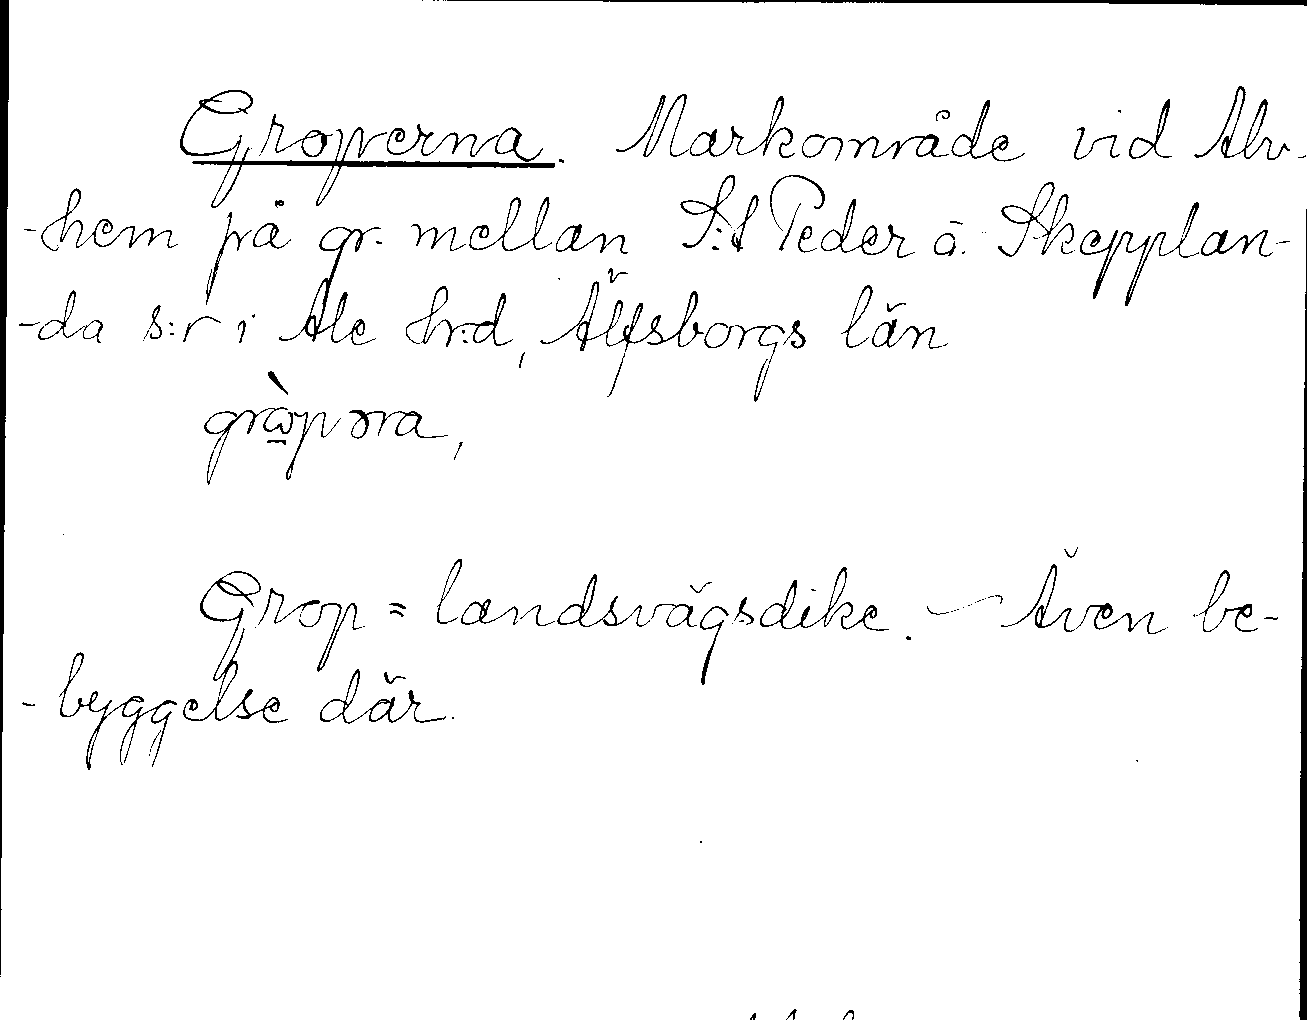 Groperna. Markområde vid Alv-
-hem på gr. mellan S:t Peder o. Skepplan-
-da s:r i Ale hrd, Älfsborgs län
grɷ̀pəra,
Grop = landsvägsdike. — Även be-
-byggelse där.